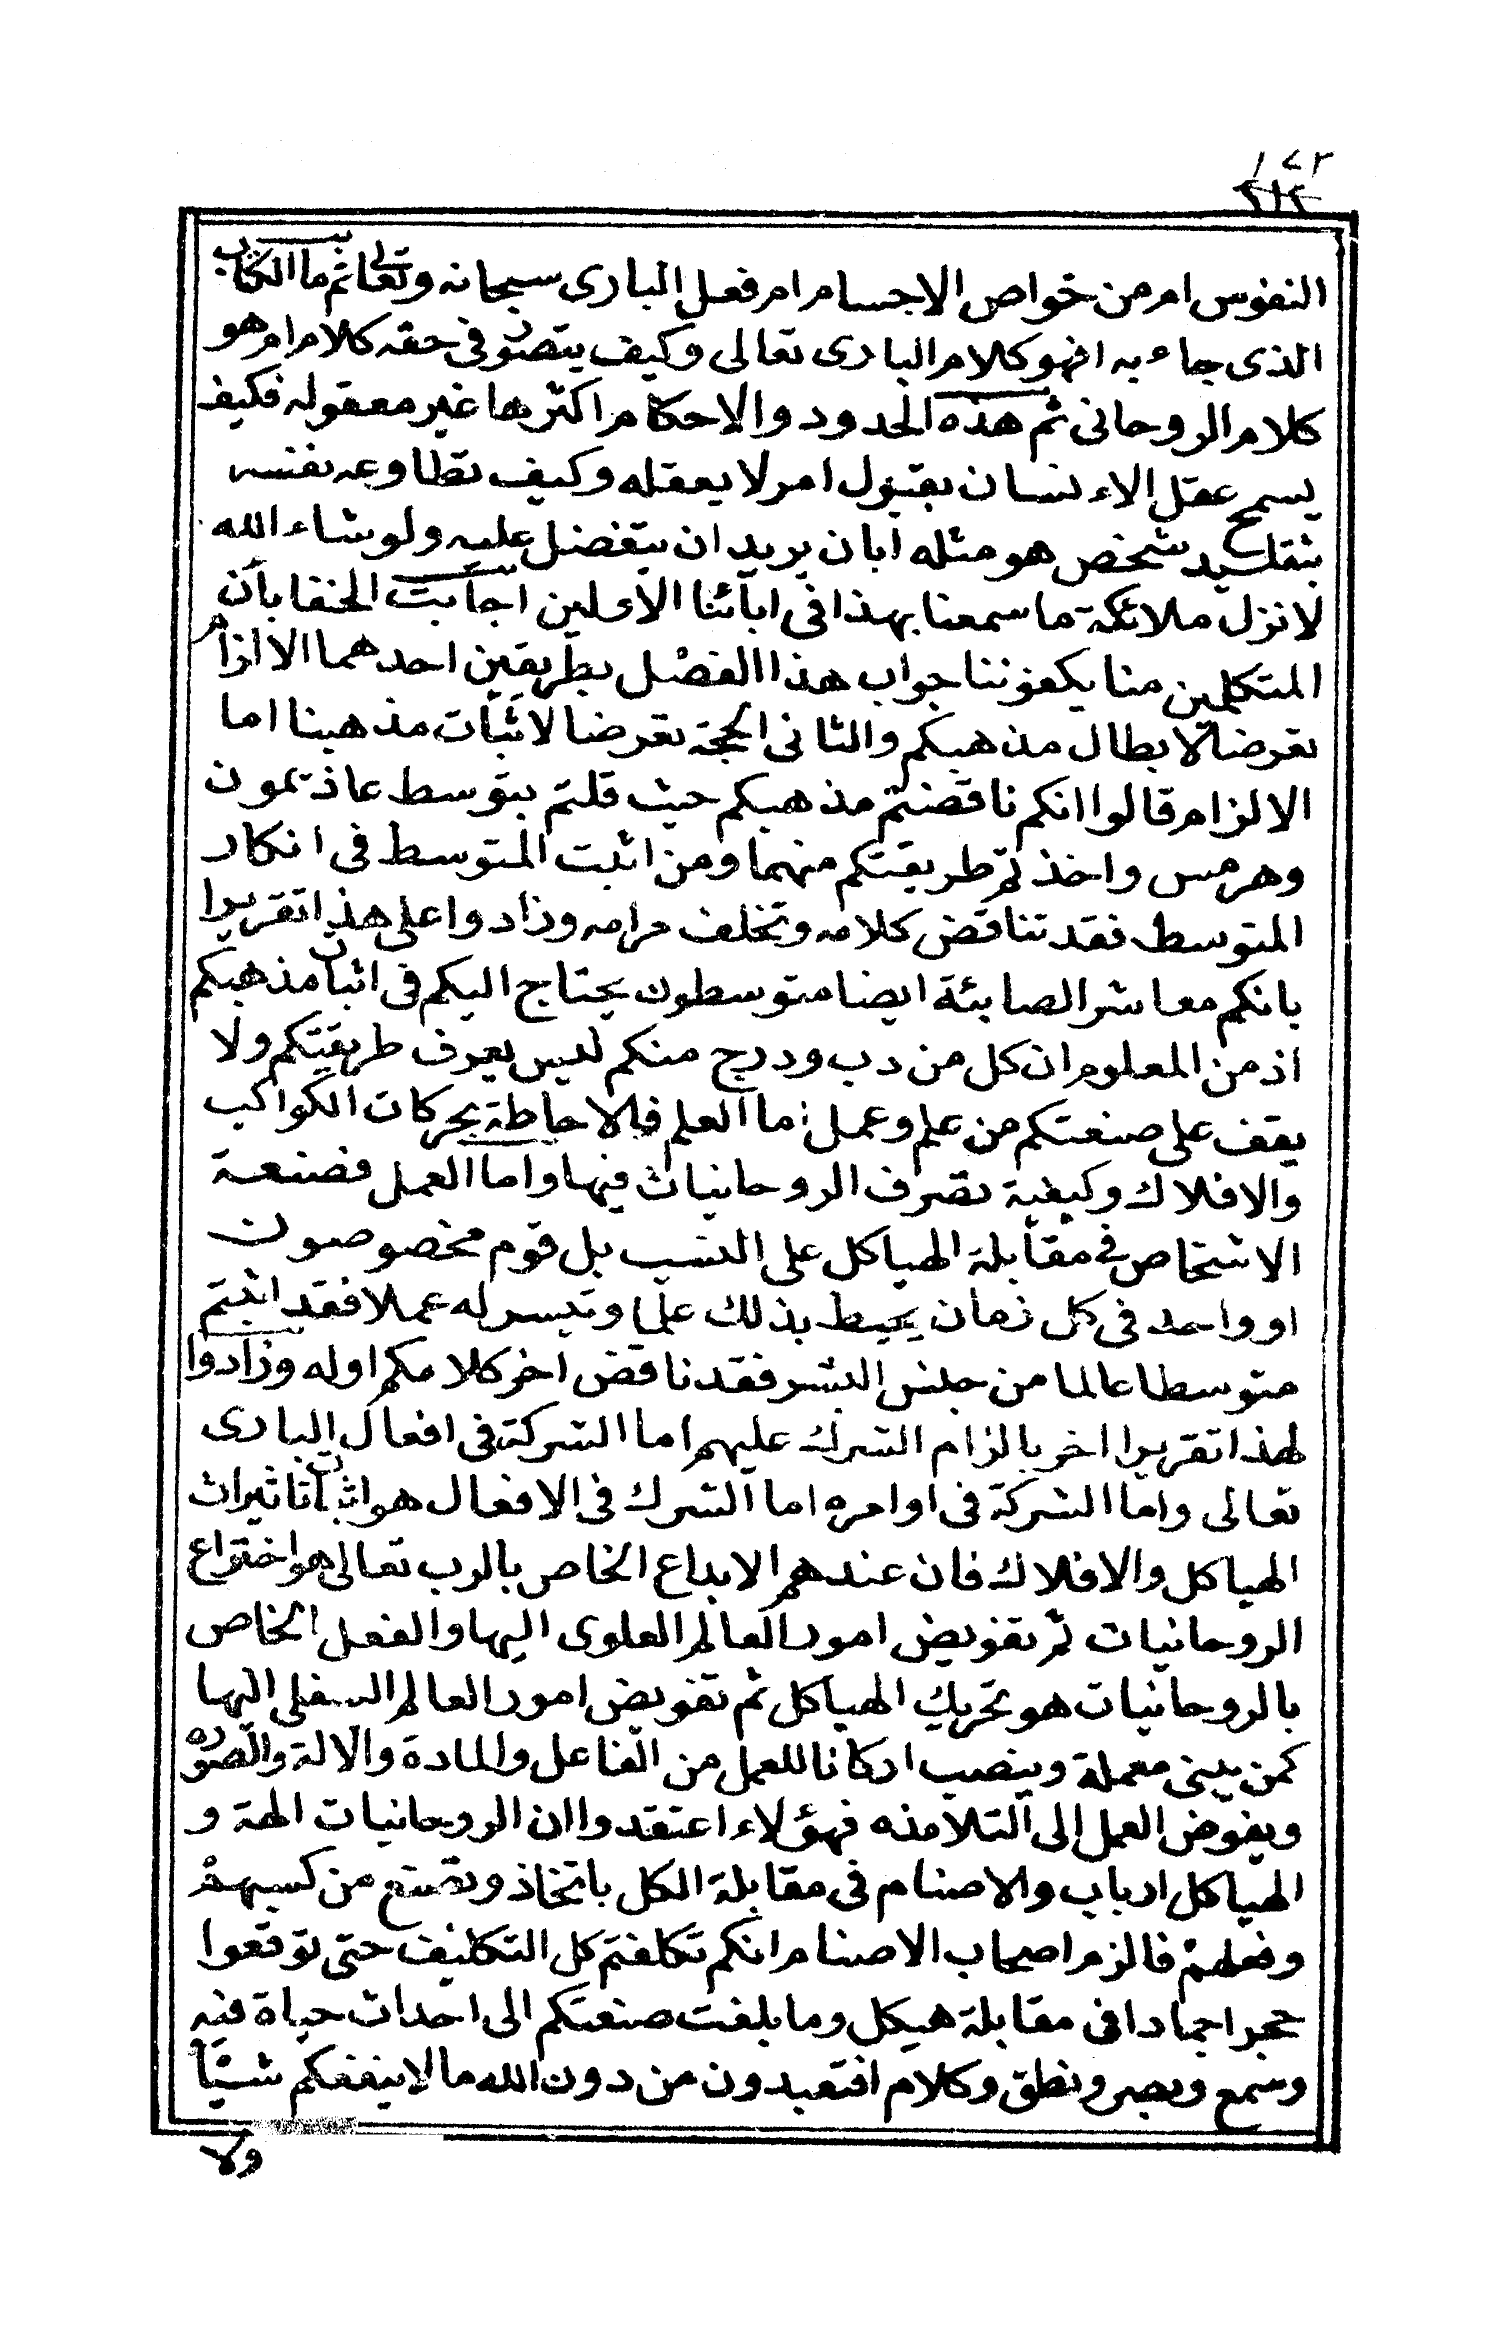 النفوس ام من خواص الاجسام ام فعل البارى سبحانه وتعالى ثم ما الكتاب
الذى جاء به افهو كلام البارى تعالى وكيف يتصور فى حقه كلام ام هو
كلام الروحانى ثم هذه الحدود والاحكام اكثرها غير معقوله فكيف
يسمح عقل الاءنسان بقبول امر لا يعقله وكيف تطاوعه نفسه
بتقليد شخص هو مثله ابان يريد ان يتفضل عليه ولو شاء الله
لانزل ملائكة ما سمعنا بهذا فى ابائنا الاولين اجابت الحنفا بان
المتكلمين منا يكفوننا جواب هذا الفصل بطريقين احدهما الالزام
تعرضا لابطال مذهبكم والثانى الحجة تعرضا لاثبات مذهبنا اما
الالزام قالوا انكم ناقضتم مذهبكم حيث قلتم بتوسط عاذيمون
وهرمس واخذتم طريقتكم منهما ومن اثبت المتوسط فى انكار
المتوسط فقد تناقض كلامه وتخلف مرامه وزادوا على هذا تقريرا
بانكم معاشر الصابئة ايضا متوسطون يحتاج اليكم فى اثبات مذهبكم
اذ من المعلوم ان كل من دب ودرج منكم ليس يعرف طريقتكم ولا
يقف على صنعتكم من علم وعمل اما العلم فالاحاطة بحركات الكواكب
والافلاك وكيفية تصرف الروحانيات فيها واما العمل فصنعة
الاشخاص فى مقابلة الهياكل على النسب بل قوم مخصوصون
او واحد فى كل زمان يحيط بذلك علما وتيسر له عملا فقد اثبتم
متوسطا عالما من جنس البشر فقد ناقض اخر كلامكم اوله وزادوا
لهذا تقريرا اخر بالزام الشرك عليهم اما الشركة فى افعال البارى
تعالى واما الشركة فى اوامره اما الشرك فى الافعال هو اثبات تاثيرات
الهياكل والافلاك فان عندهم الابداع الخاص بالرب تعالى هو اختراع
الروحانيات ثم تفويض امور العالم العلوى اليها والفعل الخاص
بالروحانيات هو تحريك الهياكل ثم تفويض امور العالم السفلى اليها
كمن يبنى معملة وينصب اركانا للعمل من الفاعل والمادة والالة والصوره
ويفوض العمل الى التلامذه فهؤلاء اعتقدوا ان الروحانيات الهة و
الهياكل ارباب والاصنام فى مقابلة الكل باتخاذ وتصنع من كسبهم
وفعلهم فالزم اصحاب الاصنام انكم تكلفتم كل التكليف حتى توقعوا
حجرا جمادا فى مقابلة هيكل وما بلغت صنعتكم الى احداث حياة فيه
وسمع وبصر ونطق وكلام افتعبدون من دون الله مالا ينفعكم شيئا
ولا